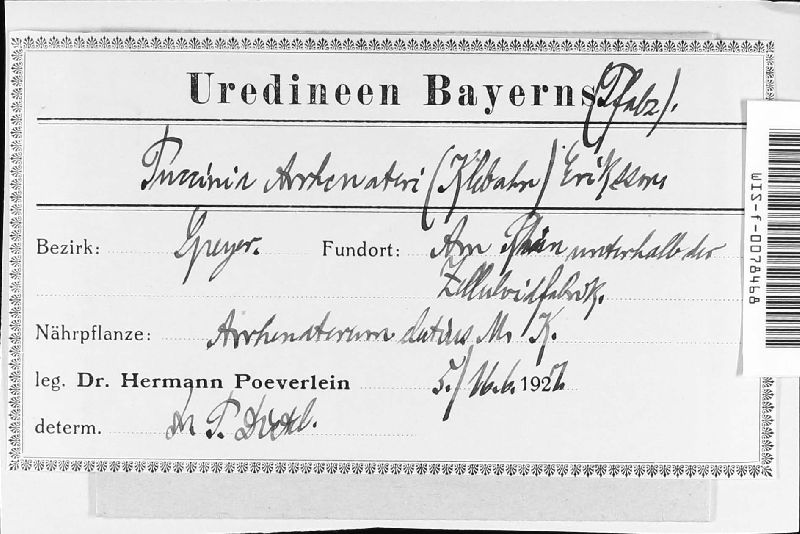 Uredineen Bayerns (Pfalz).
Puccinia Arrhenateri (Klebahn) Eriksson
Bezirk: Speyer. Fundort: Am Rhein unterhalb der
Zelluloidfabrik.
Nährpflanze: Arrhenatherum elatius M. K.
leg. Dr. Hermann Poeverlein 5./16.6.192
determ. Dr P. Dietel.
WIS-f-0078468